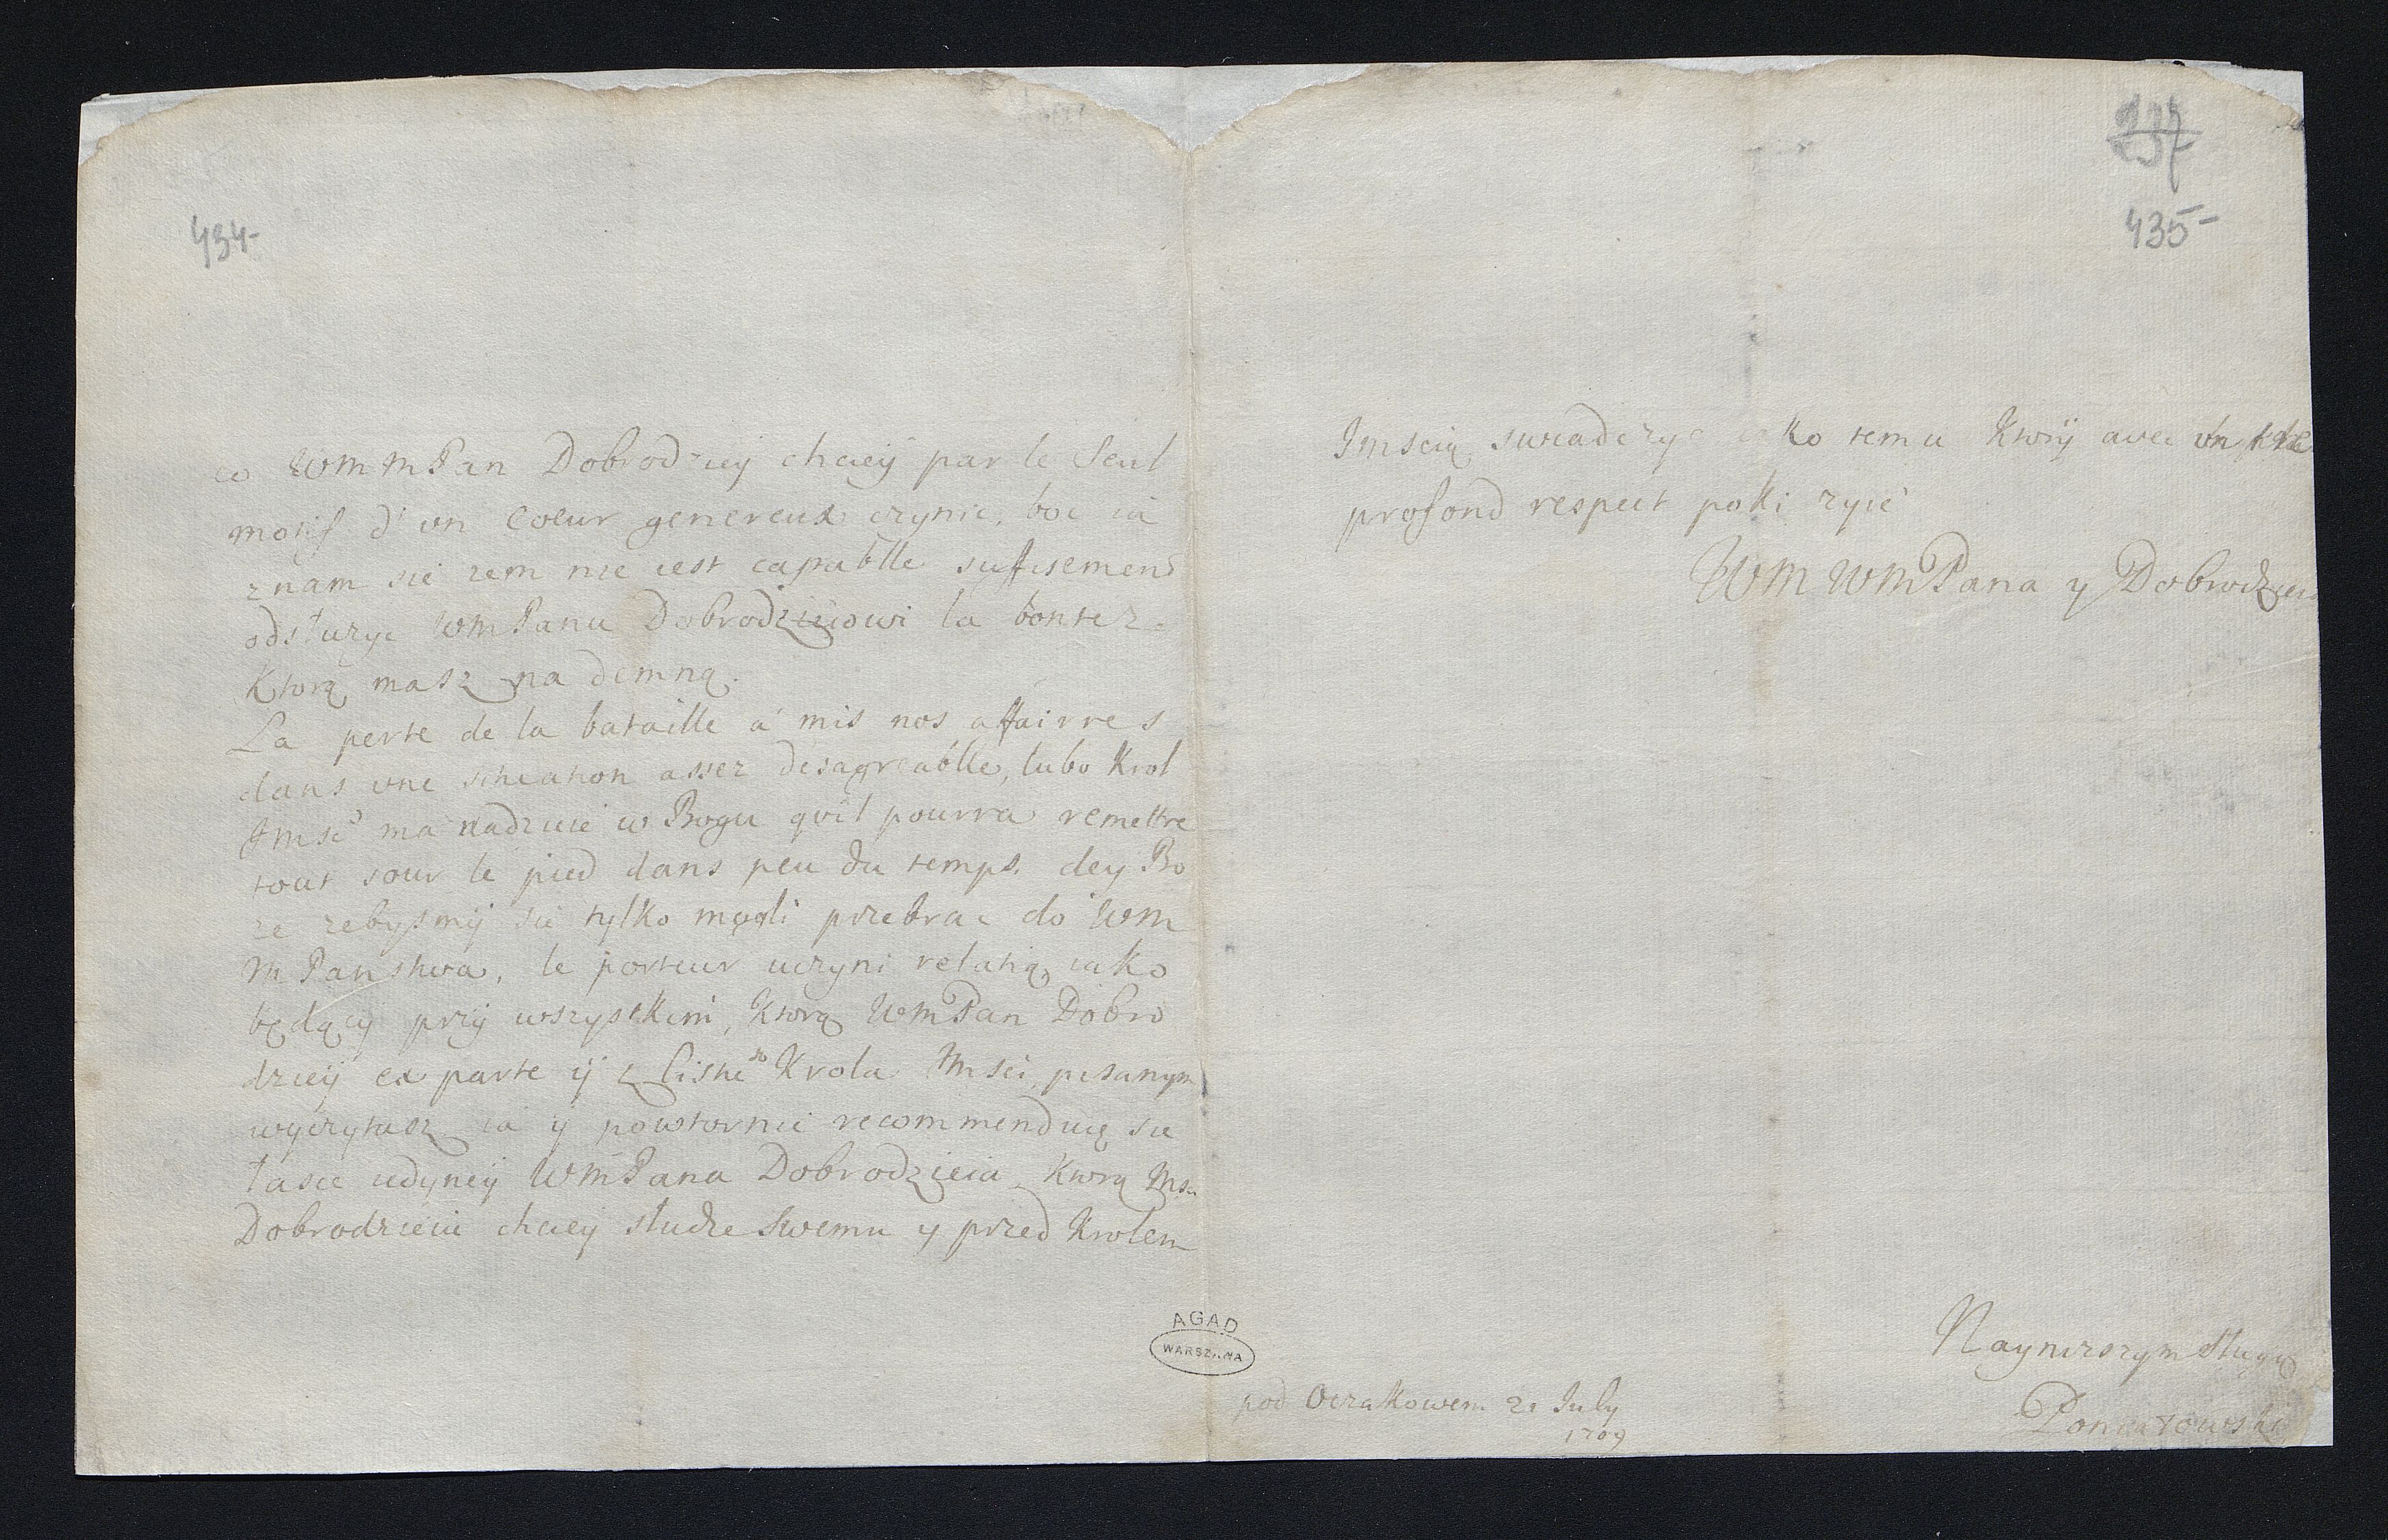 434-
co WMMPan Dobrodziey chciey par le seul
motif d'un coeur genereux czynic, boć ia
znam sie zem nie iest capablle suffisemend
odsłuzyc WMPanu Dobrodzieiowi la bontez
Ktorą masz na demną.
La perte de la bataille a mis nos affairres
dans une situation assez desagreablle, lubo Krol
Jmsć ma nadzieie w Bogu qu'il pourra remettre
tout sour le pied dans peu du temps. dey Bo
ze zebysmy sie tylko mogli przebrac do WM
MPanstwa, le porteur uczyni relatią iako
będący przÿ wszystkim, Ktorą WMPan Dobro
dzieÿ ex parte ÿ z listu do Krola Msci pisanym
wyczytasz ia ÿ powtornie recommenduię sie
łasce iedyneÿ WMPana Dobrodzieia, Ktorą
Dobrodzieiu chciey słudze swemu y przed Krolem
237
435-
Jmscią swiadczyc iako temu Ktorÿ avec un
profond respect poki zyie
WMWMPana y Dobrodzieia
Naynizszym sługą
Poniatowski
pod Oczakowem 21 July
1709
AGAD
WARSZAWA